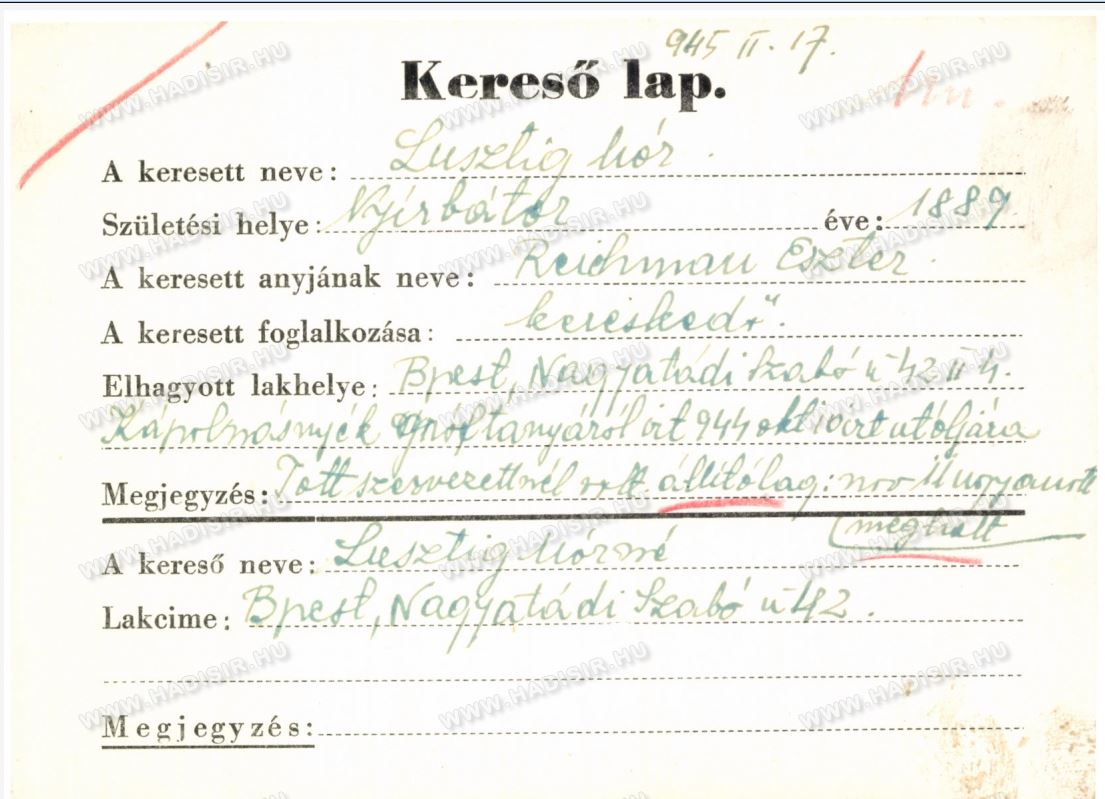 945 II. 17.
Kereső lap.
A keresett neve: Lusztig Mór.
Születési helye: Nyírbátor éve: 1889
A keresett anyjának neve: Reichman Eszter.
A keresett foglalkozása: kereskedő.
Elhagyott lakhelye: Bpest, Nagyatádi Szabó u 42 II 4.
Kápolnásnyék gróftanyáról irt 944 okt 10 irt utóljára
Megjegyzés: Tótt szervezettnél volt állítólag: nov 11 ugyanott
meghalt
A kereső neve: Lusztig Mórné
Lakcime: Bpest, Nagyatádi Szabó u 42.
Megjegyzés:
WWW.HADISIR.HU